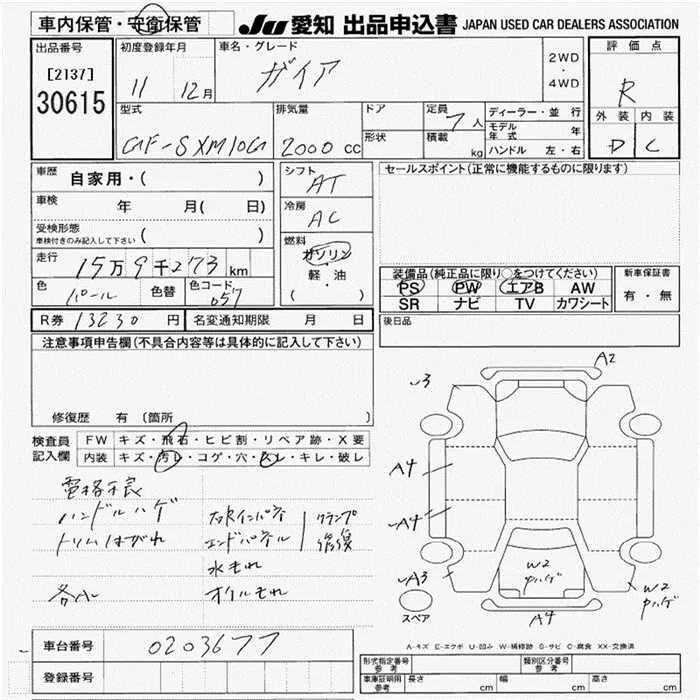 車内保管・守衛保管
JU 愛知 出品申込書 JAPAN USED CAR DEALERS ASSOCIATION
出品番号
[2137]
30615
初度登録年月
11 12月
車名・グレード
ガイア
2WD
・
4WD
評価点
R
外装 内装
D C
型式
GF-SXM10G
排気量
2000 cc
ドア
形状
定員
7人
積載
kg
ディーラー・並行
モデル年式 年
ハンドル 左・右
車歴
自家用・( )
車検
年 月( 日)
受検形態
車検付きのみ記入して下さい ( )
走行
15万9千273km
色
パール
色替
色コード
057
シフト
AT
冷房
AC
燃料
ガソリン
軽・油
( )
セールスポイント(正常に機能するものに限ります)
装備品(純正品に限り○をつけてください)
PS PW エアB AW
SR ナビ TV カワシート
新車保証書
有・無
R券 13230円
名変通知期限 月 日
後日品
注意事項申告欄(不具合内容等は具体的に記入して下さい)
修復歴 有 (箇所
検査員
記入欄
FW キズ・飛石・ヒビ割・リペア跡・X要
内装 キズ・汚レ・コゲ・穴・スレ・キレ・破レ
電格不良
ハンドルハゲ
トリムはがれ
右Rインパネ
エンドパネル
クランプ
修復
水もれ
オイルもれ
A2
A4
A4
A3
W2
Pハゲ
W2
Pハゲ
A4
スペア
A-キズ E-エクボ U-凹み W-補修跡 S-サビ C-腐食 XX-交換済
車台番号
0203677
登録番号
形式指定番号
参考
類別区分番号
参考
車庫証明用
参考
長さ cm 幅 cm 高さ cm